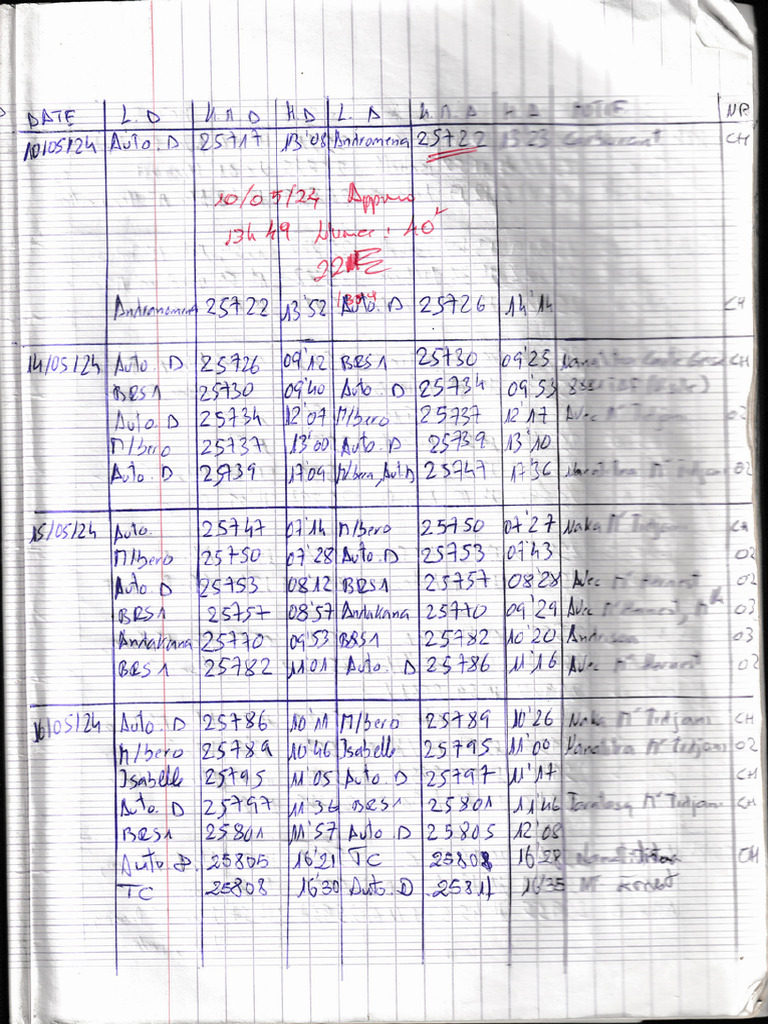 DATE L.D K.M.D H.D L.A K.M.A H.A MOTIF NB
10/05/24 Auto.D 25717 13'08 Andromena 25722 13'23 Carburant CH
10/05/24 Appro
13h49 : 40
22
Andromena 25722 13'52 Auto.D 25726 14'14 CH
14/05/24 Auto.D 25726 09'12 BRS1 25730 09'25 CH
BRS1 25730 09'40 Auto.D 25734 09'53
Auto.D 25734 12'07 M/bero 25737 12'17 Avec Mr Tidjani 02
M/bero 25737 13'00 Auto.D 25739 13'10
Auto.D 25739 17'09 M/bero, Aut.D 25747 17'36 Mr Tidjani 02
15/05/24 Auto. 25747 07'14 M/bero 25750 07'27 Naka Mr Tidjani CH
M/bero 25750 07'28 Auto.D 25753 07'43 02
Auto.D 25753 08'12 BRS1 25757 08'28 Avec Mr 02
BRS1 25757 08'57 Andakana 25770 09'29 Avec Mr 03
Andakana 25770 09'53 BRS1 25782 10'20 03
BRS1 25782 11'01 Auto.D 25786 11'16 Avec Mr 02
16/05/24 Auto.D 25786 10'11 M/bero 25789 10'26 Naka Mr Tidjani CH
M/bero 25789 10'46 Isabelle 25795 11'00 Mr Tidjani 02
Isabelle 25795 11'05 Auto.D 25797 11'17 CH
Auto.D 25797 11'36 BRS1 25801 11'46 Mr Tidjani CH
BRS1 25801 11'57 Auto.D 25805 12'08
Auto D. 25805 16'21 TC 25808 16'28 CH
TC 25808 16'30 Auto.D 25811 16'35 Mr Ernest